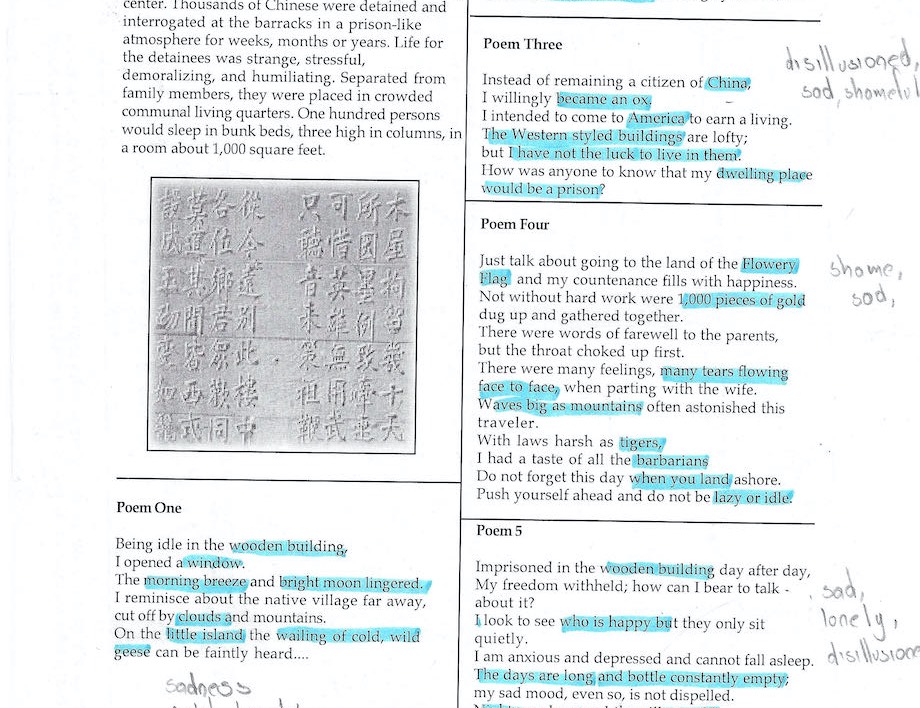 center. Thousands of Chinese were detained and
interrogated at the barracks in a prison-like
atmosphere for weeks, months or years. Life for
the detainees was strange, stressful,
demoralizing, and humiliating. Separated from
family members, they were placed in crowded
communal living quarters. One hundred persons
would sleep in bunk beds, three high in columns, in
a room about 1,000 square feet.
木屋拘留幾十天
所囚墨例致牽連
可惜英雄無用武
只聽音來策祖鞭
從今遠別此樓中
各位鄉君眾歡同
莫道其間皆西式
設成玉砌變如籠
Poem One
Being idle in the wooden building,
I opened a window.
The morning breeze and bright moon lingered.
I reminisce about the native village far away,
cut off by clouds and mountains.
On the little island the wailing of cold, wild
geese can be faintly heard....
sadness
Poem Three
Instead of remaining a citizen of China,
I willingly became an ox.
I intended to come to America to earn a living.
The Western styled buildings are lofty;
but I have not the luck to live in them.
How was anyone to know that my dwelling place
would be a prison?
disillusioned,
sad, shameful
Poem Four
Just talk about going to the land of the Flowery
Flag and my countenance fills with happiness.
Not without hard work were 1,000 pieces of gold
dug up and gathered together.
There were words of farewell to the parents,
but the throat choked up first.
There were many feelings, many tears flowing
face to face, when parting with the wife.
Waves big as mountains often astonished this
traveler.
With laws harsh as tigers,
I had a taste of all the barbarians
Do not forget this day when you land ashore.
Push yourself ahead and do not be lazy or idle.
shame,
sad,
Poem 5
Imprisoned in the wooden building day after day,
My freedom withheld; how can I bear to talk -
about it?
I look to see who is happy but they only sit
quietly.
I am anxious and depressed and cannot fall asleep.
The days are long and bottle constantly empty;
my sad mood, even so, is not dispelled.
sad,
lonely,
disillusione